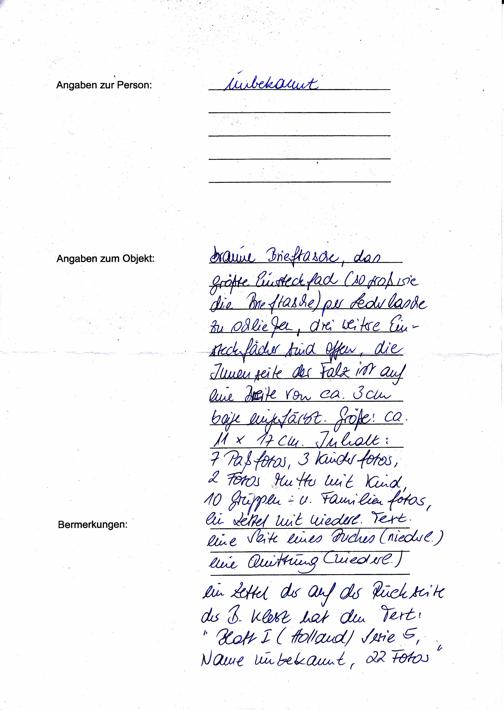 Angaben zur Person: Unbekannt
Angaben zum Objekt: braune Brieftasche, das
größte Einsteckfach (so groß wie
die Brieftasche) per Lederlasche
zu schließen, drei weitere Ein-
steckfächer sind offen, die
Innenseite der Falz ist auf
eine Breite von ca. 3cm
beige eingefärbt. Größe: ca.
11 x 17cm. Inhalt:
7 Paßfotos, 3 Kinderfotos,
2 Fotos Mutter mit Kind,
10 Gruppen- u. Familienfotos,
Bemerkungen: ein Zettel mit niederl. Text.
eine Seite eines Buches (niederl.)
eine Quittung (niederl.)
ein Zettel der auf der Rückseite
der B. klebt hat den Text:
"Blatt I (Holland) Serie 5,
Name unbekannt, 22 Fotos"